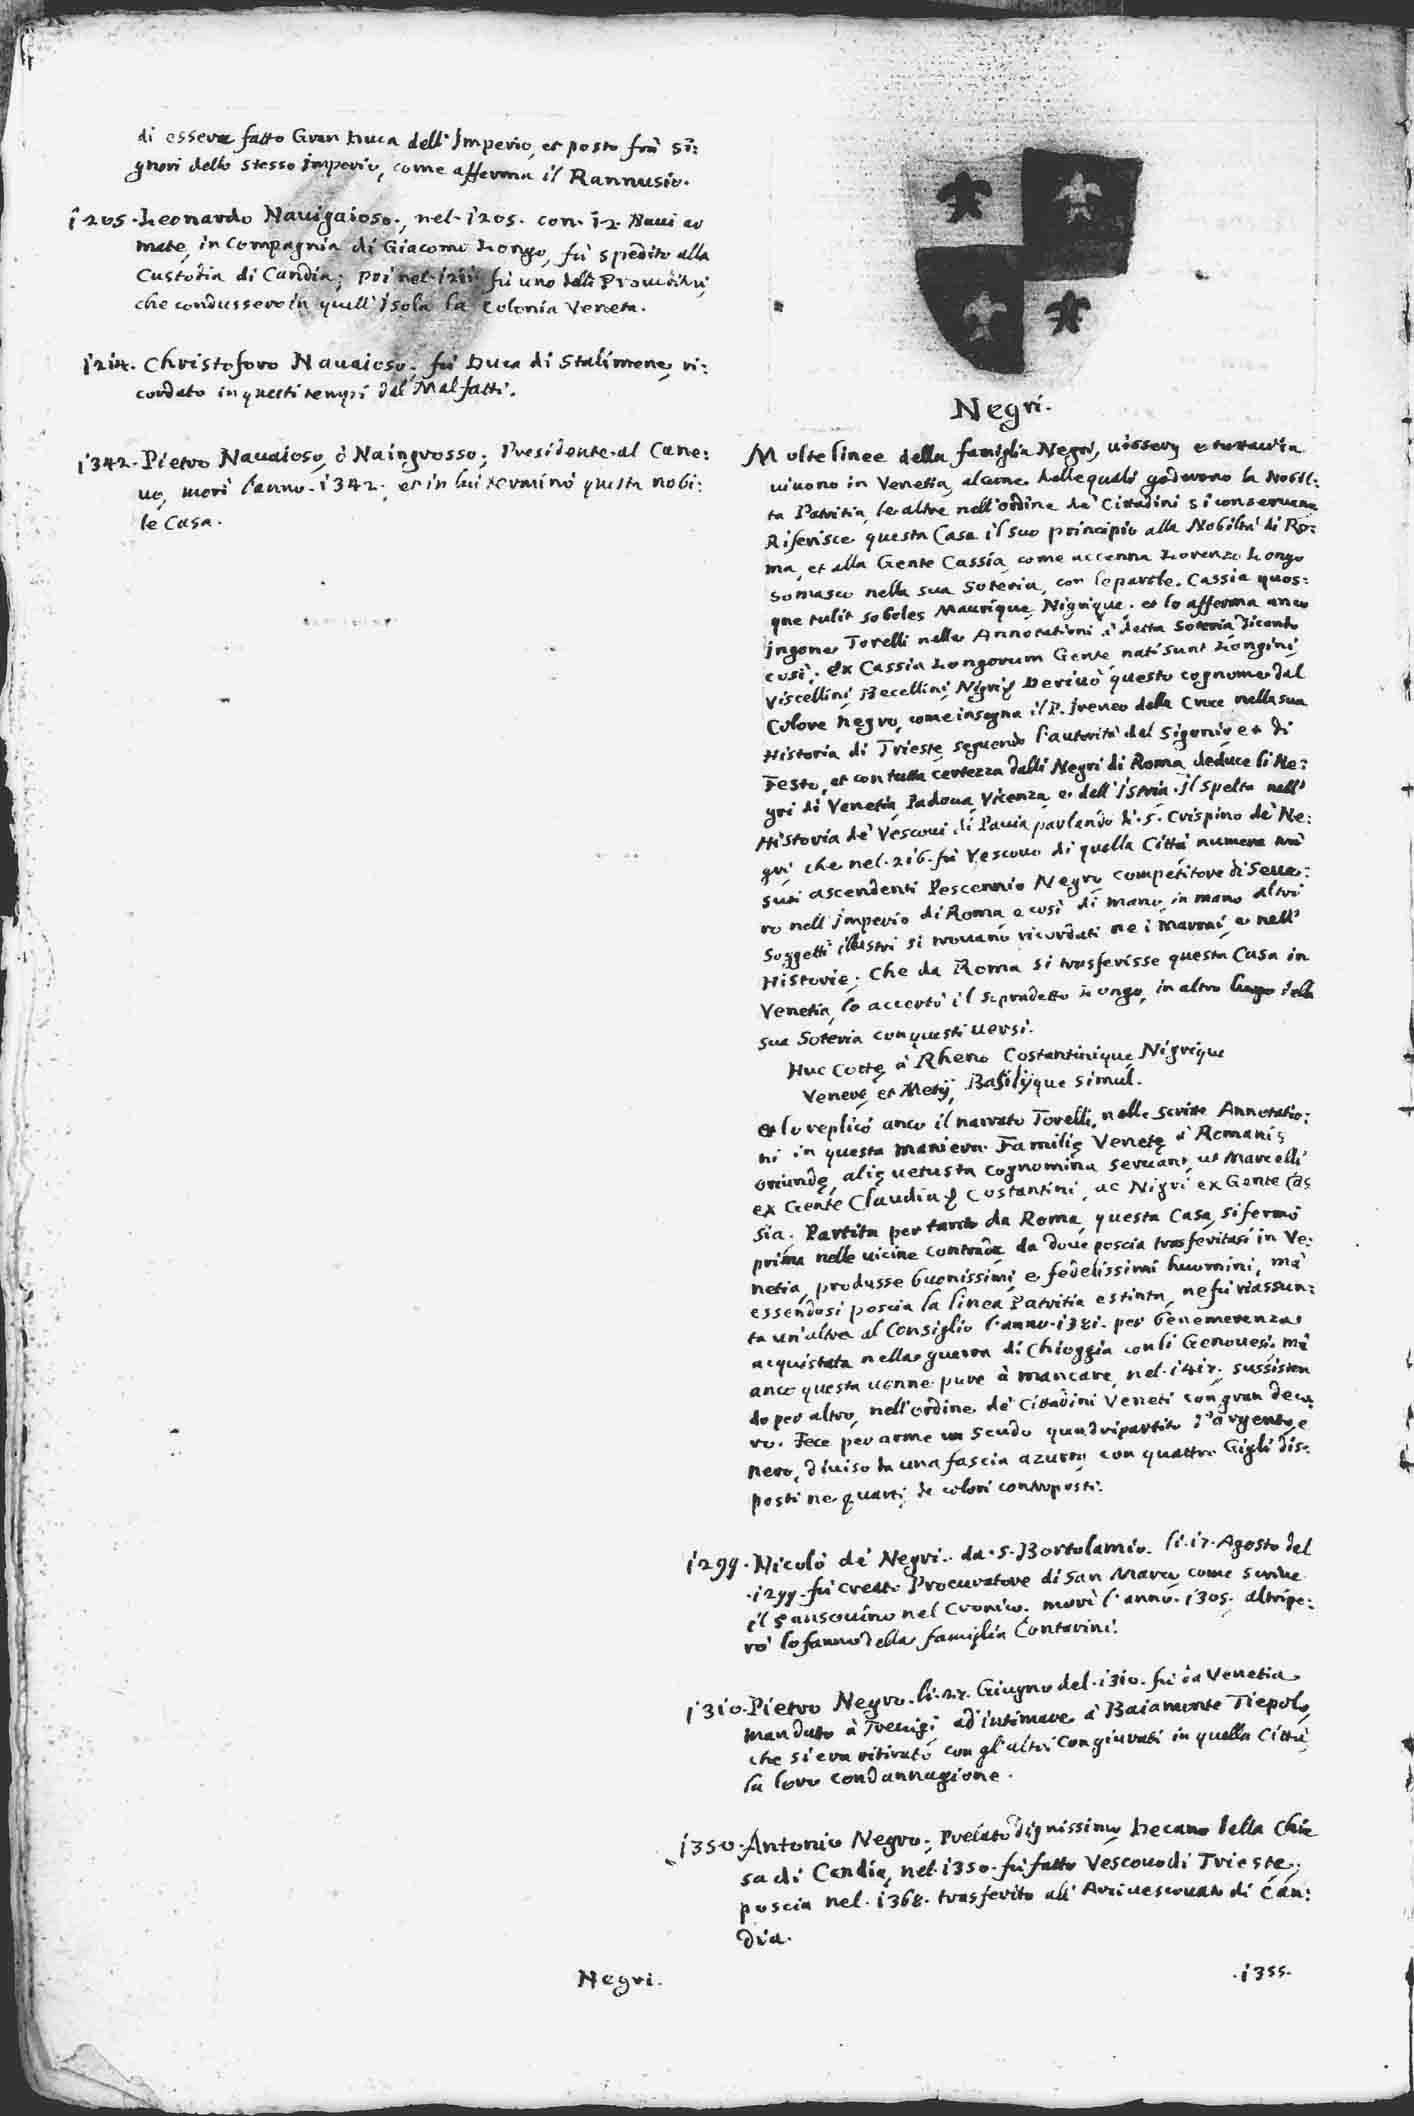 di essere fatto Gran Duca dell'Imperio, et posto frà Si:
gnori dello stesso Imperio, come afferma il Rannusio.
1205. Leonardo Nauigaioso; nel. 1205. con. 12. Naui ar
mate, in Compagnia di Giacomo Longo, fù spedito alla
Custodia di Candia; poi nel fù uno delli Proueditori,
che condussero in quell'Isola la Colonia Veneta.
1214. Christoforo Nauaioso; fù Duca di Stalimene, ri:
cordato in questi tempi dal Malfatti.
1342. Pietro Nauaioso, ò Naingrosso; Presidente al Cane:
uo, morì l'anno. 1342. et in lui terminò questa nobi:
le Casa.
Negri.
Molte linee della famiglia Negri, uissero, e tuttauia
uiuono in Venetia, alcune delle quali goderono la Nobil:
ta Patritia, le altre nell'ordine de Cittadini si conseruano
Riferisce questa Casa il suo principio alla Nobiltà di Ro:
ma, et alla Gente Cassia, come accenna Lorenzo Longo
Somasco nella sua Soteria, con le parole. Cassia quos:
que tulit soboles Maurique, Nigrique. et lo afferma anco
Ingone Torelli nelle Annotationi à detta Soteria dicendo
così; ex Cassia Longorum Gente nati sunt Longini,
Viscellini, Becellini, Nigri. Deriuò questo cognome dal
Colore negro, come insegna il P. Ireneo della Croce nella sua
Historia di Trieste, seguendo l'autorità del Sigonio, et di
Festo, et con tutta certezza dalli Negri di Roma deduce li Ne:
gri di Venetia, Padoua, Vicenza, e dell'Istria. Il Spelta nell'
Historia de' Vescoui di Pauia parlando di. S. Crispino de' Ne:
gri, che nel. 216. fù Vescouo di quella Città numera trà
suoi ascendenti Pescennio Negro competitore di Seue:
ro nell'Imperio di Roma, e così di mano, in mano altri
Soggetti illustri si trouano ricordati ne i Marmi, e nell'
Historie. Che da Roma si trasferisse questa Casa in
Venetia, lo accertò il sopradetto Longo, in altro luogo della
sua Soteria con questi uersi.
Huc Cottę à Rheno Costantinique, Nigrique
Venere, et Metij, Basilijque simul.
et lo replicò anco il narrato Torelli, nelle scritte Annotatio:
ni in questa maniera. Familię Venetę à Romanis
oriundę, alię uetusta cognomina seruant, ut Marcelli
ex Gente Claudia, Costantini, ac Nigri ex Gente Cas
sia. Partita per tanto da Roma, questa Casa, si fermò
prima nelle uicine contrade, da doue poscia trasferitasi in Ve:
netia, produsse buonissimi, e fedelissimi huomini, mà
essendosi poscia la linea Patritia estinta, ne fù riassun:
ta un'altra al Consiglio l'anno. 1381. per benemerenza
acquistata nella guerra di Chioggia con li Genouesi, mà
anco questa uenne pure à mancare, nel. 1417. sussisten
do per altro, nell'ordine de' Cittadini Veneti con gran deco
ro. Fece per arme un Scudo quadripartito d'argento, e
nero, diuiso da una fascia azurra, con quattro Gigli dis:
posti ne quarti, de colori contraposti.
1299. Nicolò de' Negri. da. S. Bortolamio. li. 17. Agosto del
.1299. fù creato Procuratore di San Marco, come scriue
il Sansouino nel Cronico. morì l'anno. 1305. altri pe:
rò lo fanno della famiglia Contarini.
1310. Pietro Negro. li. 27. Giugno del. 1310. fù da Venetia
mandato à Treuigi, ad intimare à Baiamonte Tiepolo,
che si era ritirato con gl'altri Congiurati in quella Città,
la loro condannagione.
1350. Antonio Negro; Prelato dignissimo, Decano della Chie
sa di Candia, nel. 1350. fù fatto Vescouo di Trieste,
poscia nel. 1368. trasferito all'Arciuescouato di Can:
dia.
Negri.
.1355.